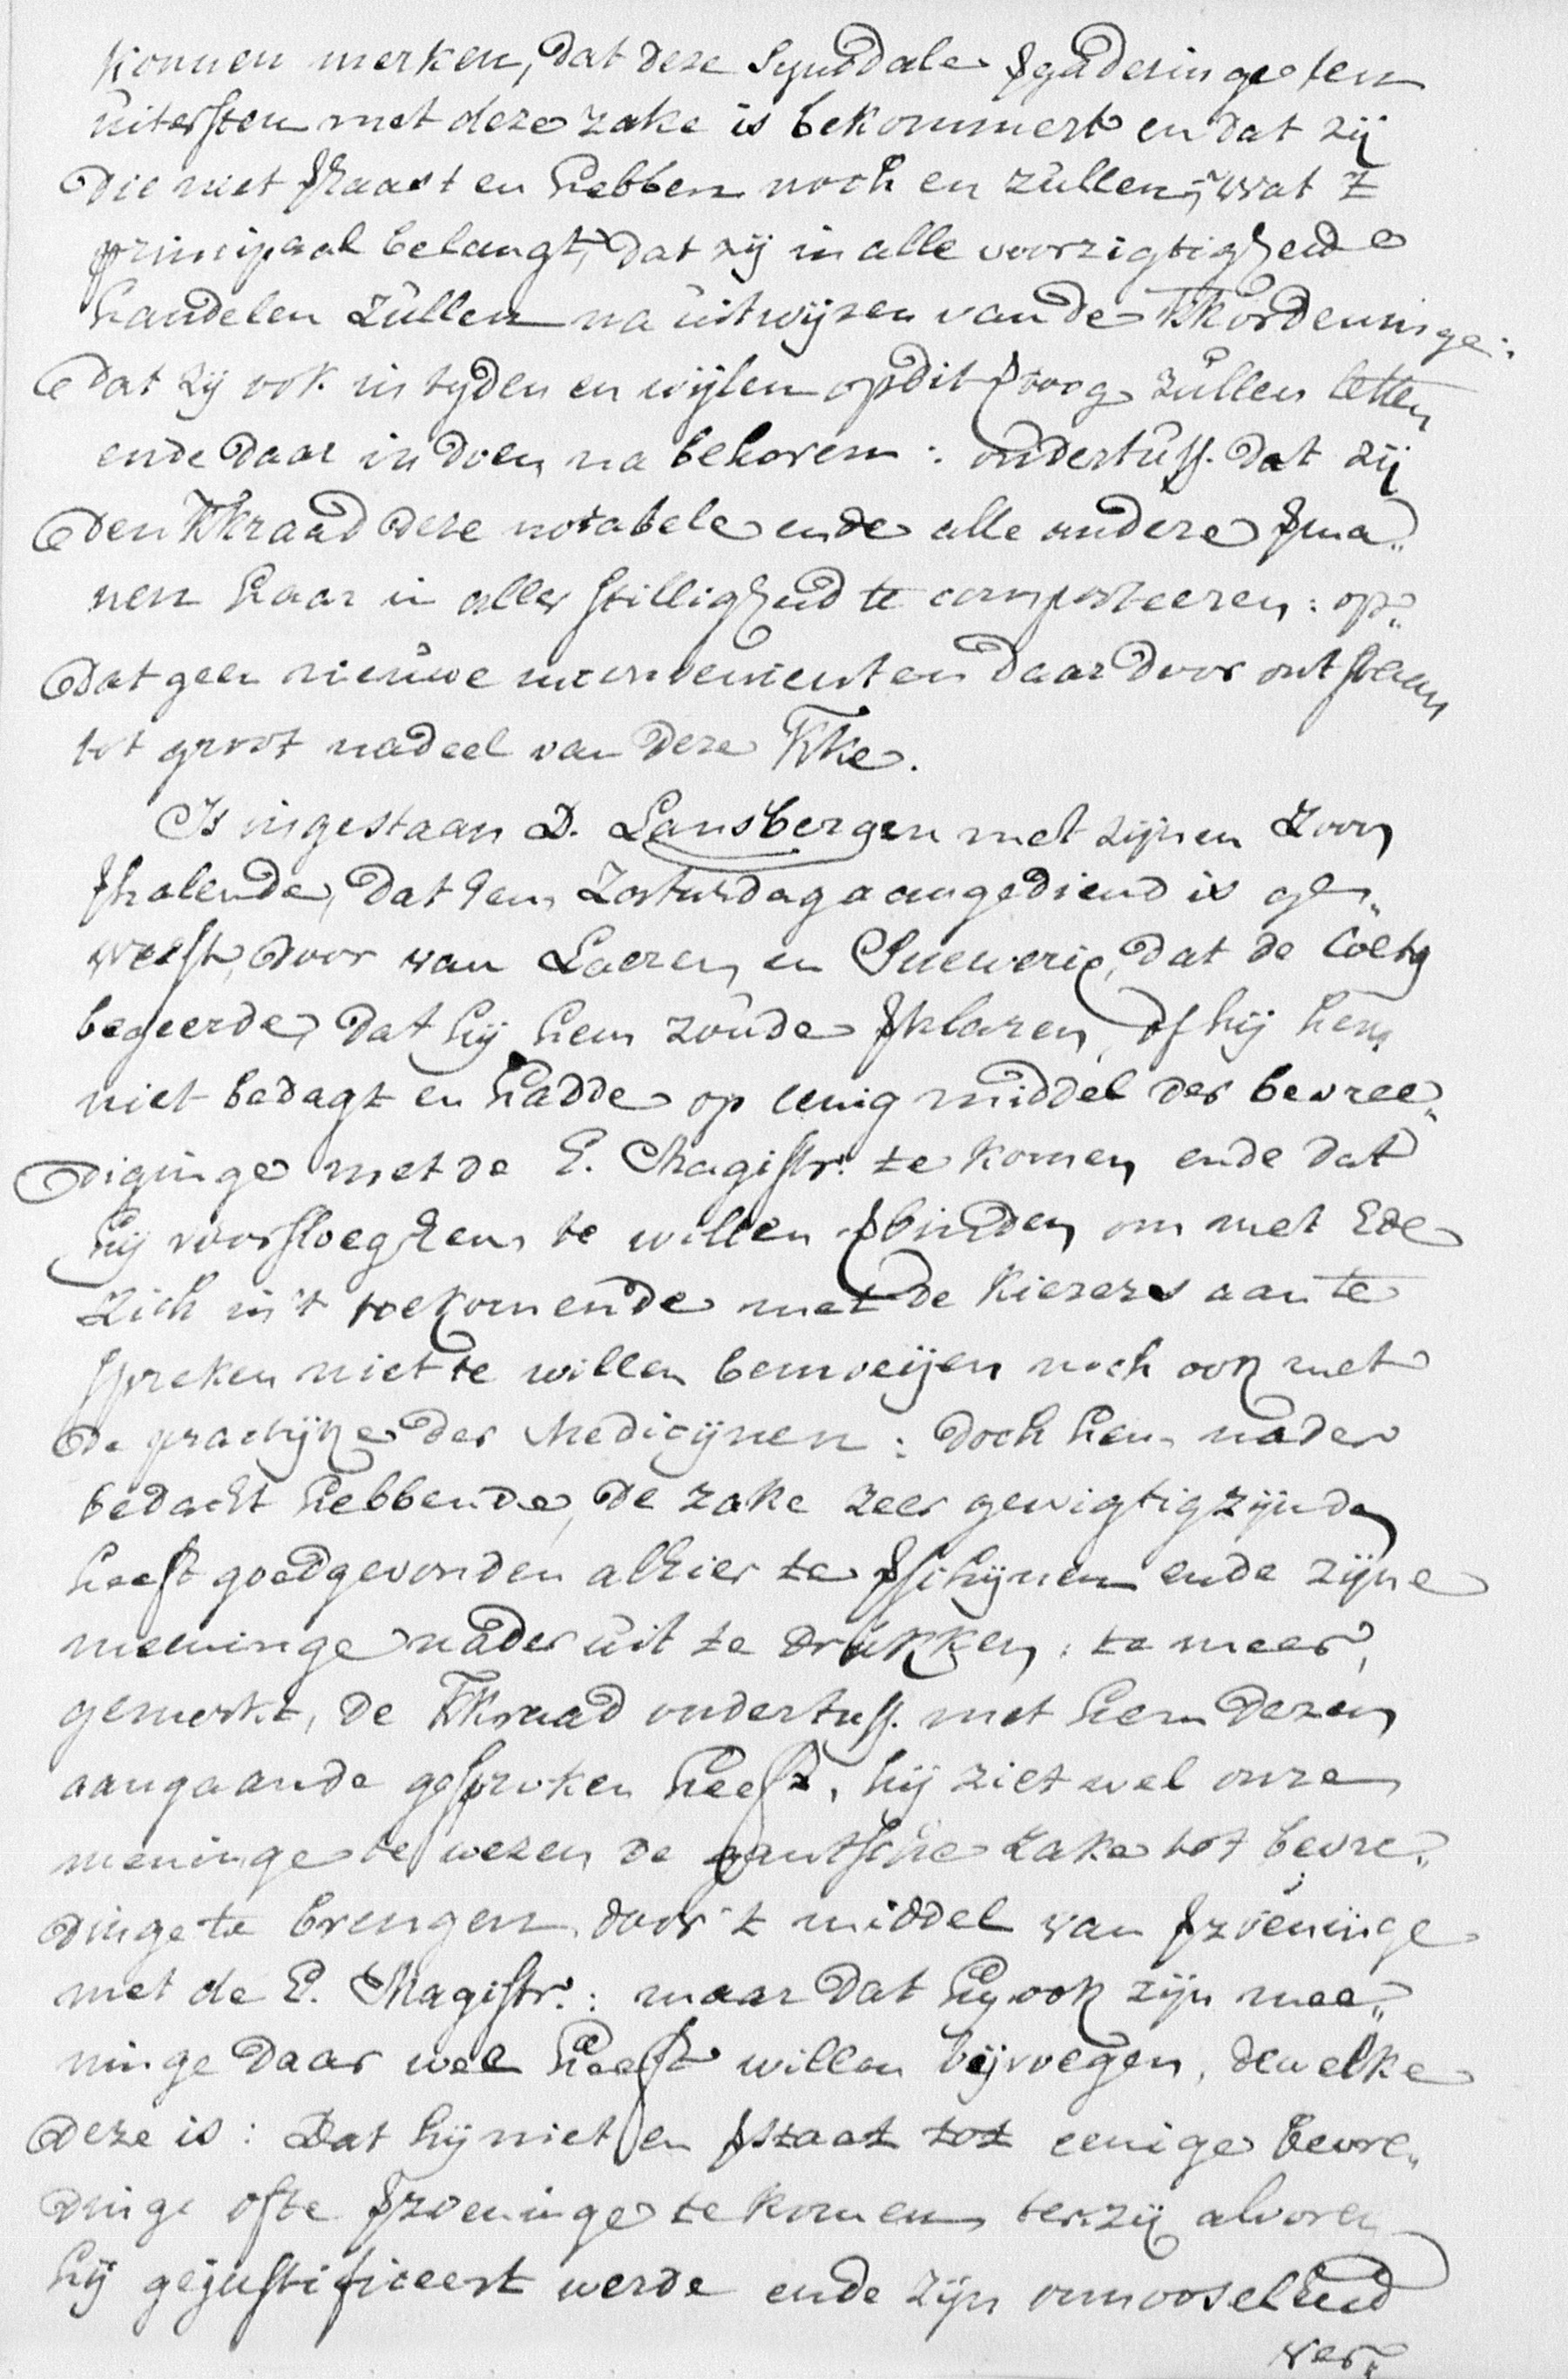 konnen merken, dat deze Synodale Vgaderinge ten
uitersten met deze zake is bekommert en dat zij
die niet Vhaast en hebben noch en zullen; Wat 't
principaal belangt, dat zij in alle voorzigtigheid
handelen zullen na uitwijzen van de KKordeninge:
dat zij ook in tyden en wijlen op dit Vtoog zullen letten
ende daar in doen na behoren: ondertuss. dat zij
den KKraad deze notabele ende alle andere Vma„
nen haar in aller stilligheid te comporteeren: op„
dat geen nieuwe inconvenienten daar door ontstaan
tot groot nadeel van deze KKe.
Is ingestaan D. Lansbergen met zijnen Zoon
Vhalende, dat hem Zosturdag aangediend is ge„
weest, door van Laeren en Snewerie, dat de Coetg
begeerde, dat hij hem zoude Vklaren, of hij hem
niet bedagt en hadde op eenig middel der bevree„
diginge met de E. Magistr. te komen ende dat
hij voorsloeg hem te willen Vbinden om met Ede
zich in 't toekomende met de Kiezers aan te
spreken niet te willen bemoeijen noch ook met
de practijke der Medicijnen: doch hem nader
bedacht hebbende, de zake zeer gewigtig zijnde
heeft goedgevonden alhier te Vschijnen ende zijne
meeninge nader uit te drukken: te meer,
gemerkt, de KKraad ondertuss. met hem dezen
aangaande gesproken heeft, hij ziet wel onze
meninge te wezen de gantsche zake tot bevre„
dinge te brengen door 't middel van Vzoeninge
met de E. Magistr.: maar dat hij ook zijn mee„
ninge daar wel heeft willen bijvoegen, dewelke
deze is: Dat hij niet en Vstaat tot eenige bevre„
dinge ofte Vzoeninge te komen, ten zij alvoren
hij gejustificeert werde ende zijn onnooselheid
ver„